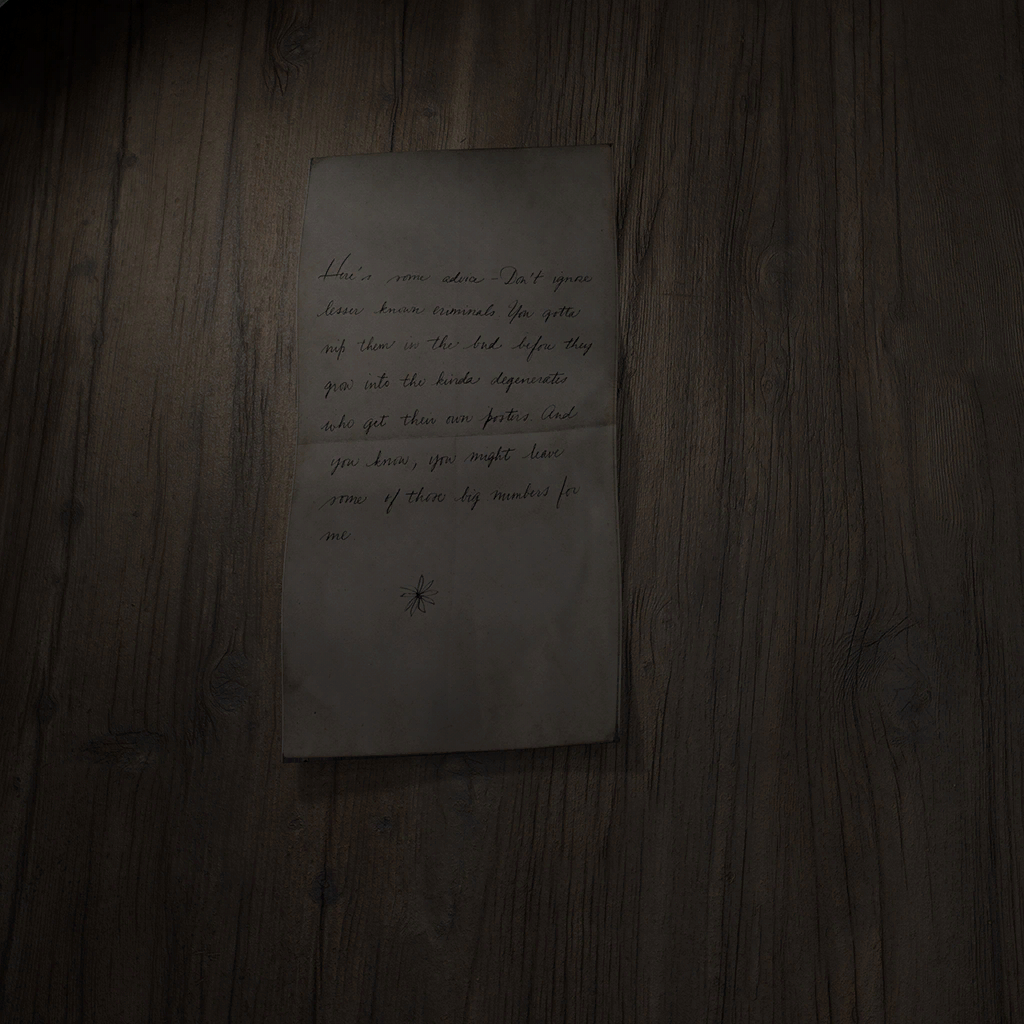 Here's some advice - Don't ignore
lesser known criminals You gotta
nip them in the bud before they
grow into the kinda degenerates
who get their own posters. And
you know, you might leave
some of those big numbers for
me